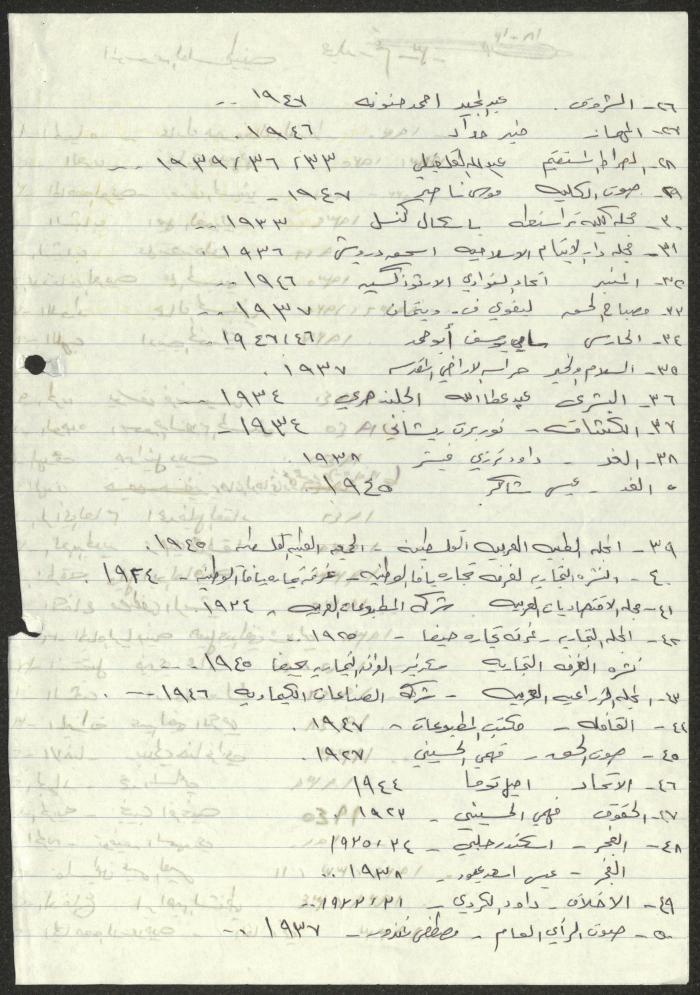 ٢٦- الشروق. عبد المجيد احمد حنونه ١٩٤٧ --
٢٧- المهماز خير ١٩٤٦.
٢٨- الصراط المستقيم عبد الله القلقيلي ٢٣٣ /٣٦ /١٩٣٩ - -
٢٩- صوت الكليه موسى ناصر ١٩٤٧ -
٣٠- مجله كلية تراسنطه باسكال كنسل ١٩٣٣ - -
٣١- مجله دار الايتام الاسلاميه اسحق درويش ١٩٣٦ -
٣٢- المنبر اتحاد النوادي الارثوذكسيه ١٩٤٦ - -
٣٣- مصباح الحق ليفوي ف - ويتمان ١٩٣٧ - -
٣٤- الحارس سامي يوسف أبو حمد ١٩٤٦/٤٦ - -
٣٥- السلام والخير حراسه الاراضي المقدسه ١٩٣٧ .
٣٦- البشرى عبد عطا الله الجلندمري ١٩٣٤ - -
٣٧- الكشاف - نوربرت ريشاني ١٩٣٤ -
٣٨- الغد - داود ترزي فيشر ١٩٣٨
٥ الغد - عيسى شاكر ١٩٤٥
٣٩- المجله الطبيه العربيه الفلسطينية - الجمعيه الطبيه الفلسطينيه ١٩٤٥.
٤٠- النشره التجاريه لغرفه تجاره يافا الوطنيه - غرفه تجاره يافا الوطنيه - ١٩٢٤ .
٤١- مجله الاقتصاديات العربيه شركه المطبوعات العربيه - ١٩٣٤
٤٢- المجله التجاريه - غرفه تجاره حيفا - ١٩٢٥
نشره الغرفه التجاريه الغرفه التجاريه بحيفا ١٩٤٥ - -
٤٣- المجله الزراعيه العربيه - شركه الصناعات الكيماويه ١٩٤٦ - - .
٤٤- القافله - مكتب المطبوعات - ١٩٤٧ .
٤٥- صوت الحق - فهمي الحسيني ١٩٢٧.
٤٦- الاتحاد اميل توما ١٩٤٤
٤٧- الحقوق فهمي الحسيني - ١٩٢٣
٤٨- الفجر - اسكندر حلبي - ١٩٣٥/٣٤
الفجر - عيسى اسعد - ١٩٣٨ ..
٤٩- الاخلاق - داود الكردي - ١٩٢٢/٢١
٥٠- صوت الرأي العام - مصطفى - ١٩٣٧ - .